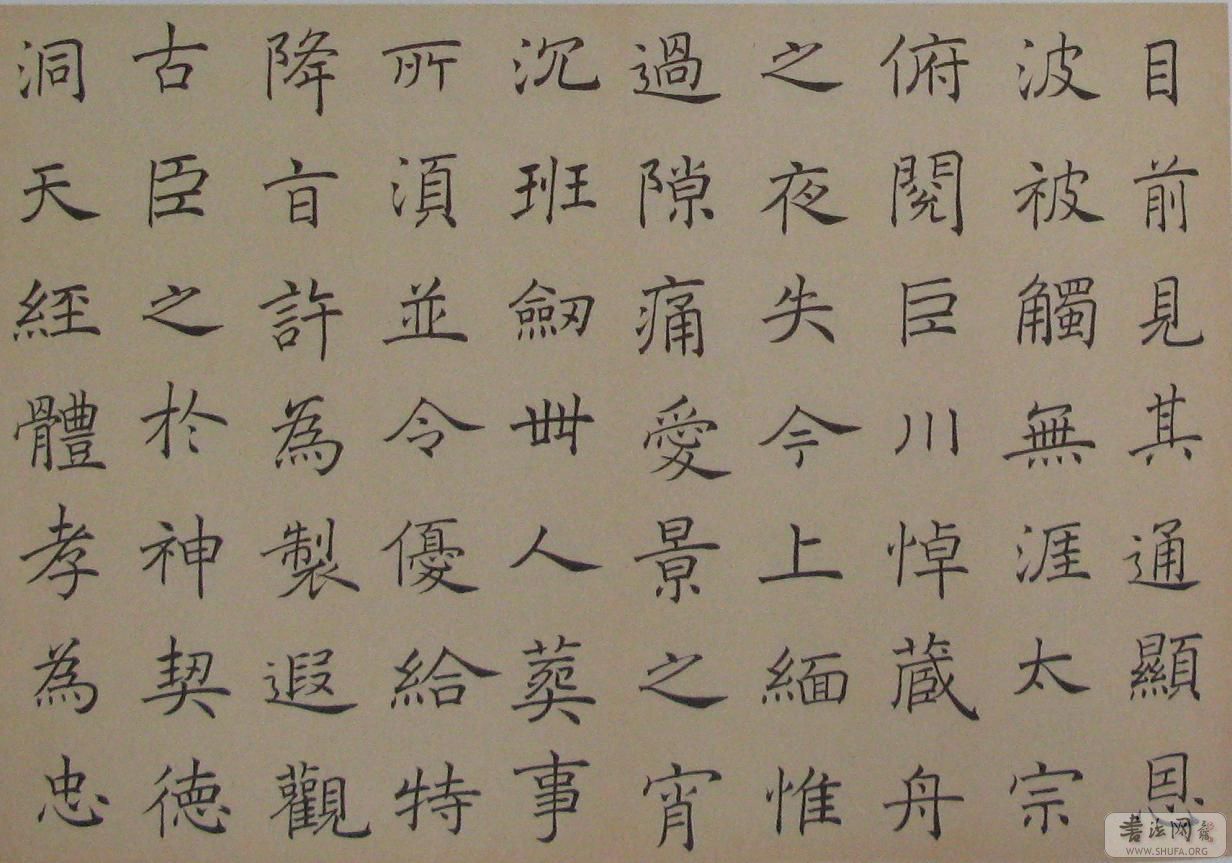 目前見其通顯恩
波被觸無涯太宗
俯閱巨川悼蔵舟
之夜失今上緬惟
過隙痛愛景之宵
沉班劒丗人葬事
所湏並令優給特
降㫖許為製遐觀
古臣之於神契德
洞天經體孝為忠
書法网
WWW.SHUFA.ORG